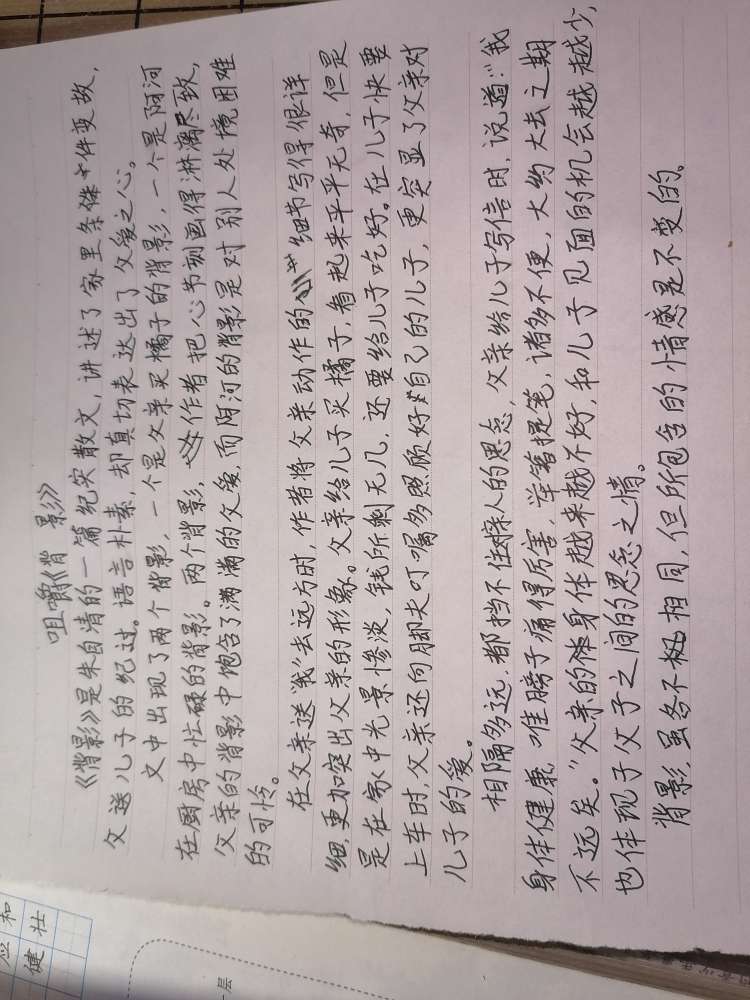 咀嚼《背影》
《背影》是朱自清的一篇纪实散文，讲述了家里条件变故，
父送儿子的经过。语言朴素，却真切表达出了父爱之心。
文中出现了两个背影，一个是父亲买橘子的背影，一个是阿河
在厨房中忙碌的背影。两个背影，作者把心节刻画得淋漓尽致，
父亲的背影中饱含了满满的父爱，而阿河的背影是对别人处境困难
的可怜。
在父亲送“我”去远方时，作者将父亲动作的细节写得很详
细，更加突出父亲的形象。父亲给儿子买橘子，看起来平平无奇，但是
是在家中光景惨淡，钱所剩无几，还要给儿子吃好。在儿子快要
上车时，父亲还向脚夫叮嘱多照顾好自己的儿子，更突显了父亲对
儿子的爱。
相隔多远，都挡不住人的思念，父亲给儿子写信时，说道：“我
身体健康，唯膀子痛得厉害，举箸提笔，诸多不便，大约大去之期
不远矣。”父亲的身体越来越不好，和儿子见面的机会越越少，
也体现了父子之间的思念之情。
背影，虽各不相同，但所包含的情感是不变的。
和
健壮
一层